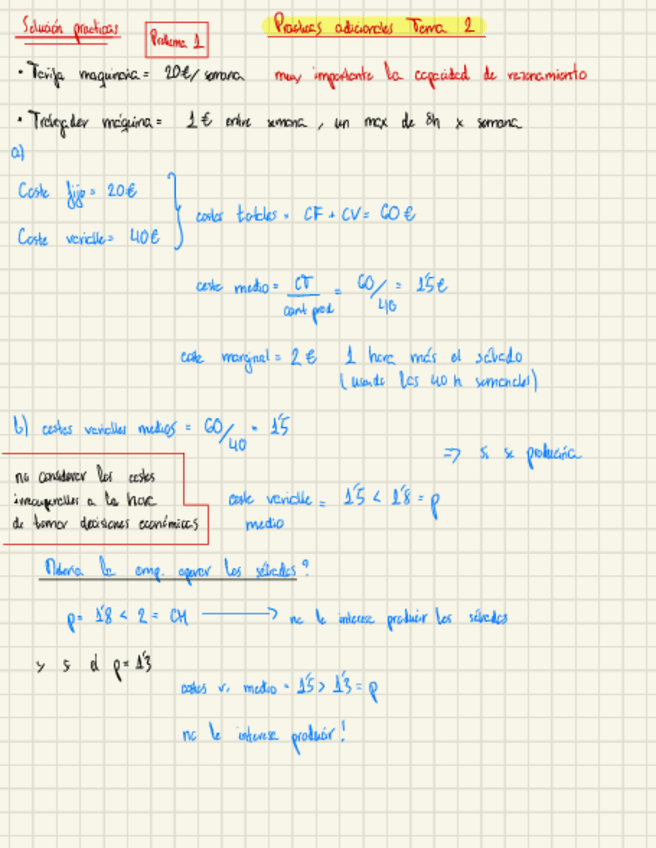 Solución practicas
Problema 1
Practicas adicionales Tema 2
• Tarifa maquinaria = 20€/semana
muy importante la capacidad de razonamiento
• Trabajador máquina = 1€ entre semana, un max de 8h x semana
a)
Coste fijo = 20€
Coste variable = 40€
costes totales = CF + CV = 60€
coste medio = CT/cant prod = 60/40 = 1'5€
coste marginal = 2€ 1 hora más el sábado
(usando las 40 h semanales)
b) costes variables medios = 60/40 = 1'5
=> si se produciría
no considerar los costes
irrecuperables a la hora
de tomar decisiones económicas
coste variable = 1'5 < 1'8 = p
medio
la emp. operar los sábados?
p = 1'8 < 2 = CM → no le interesa producir los sábados
> si el p = 1'3
costes v. medio = 1'5 > 1'3 = p
no le interesa producir!